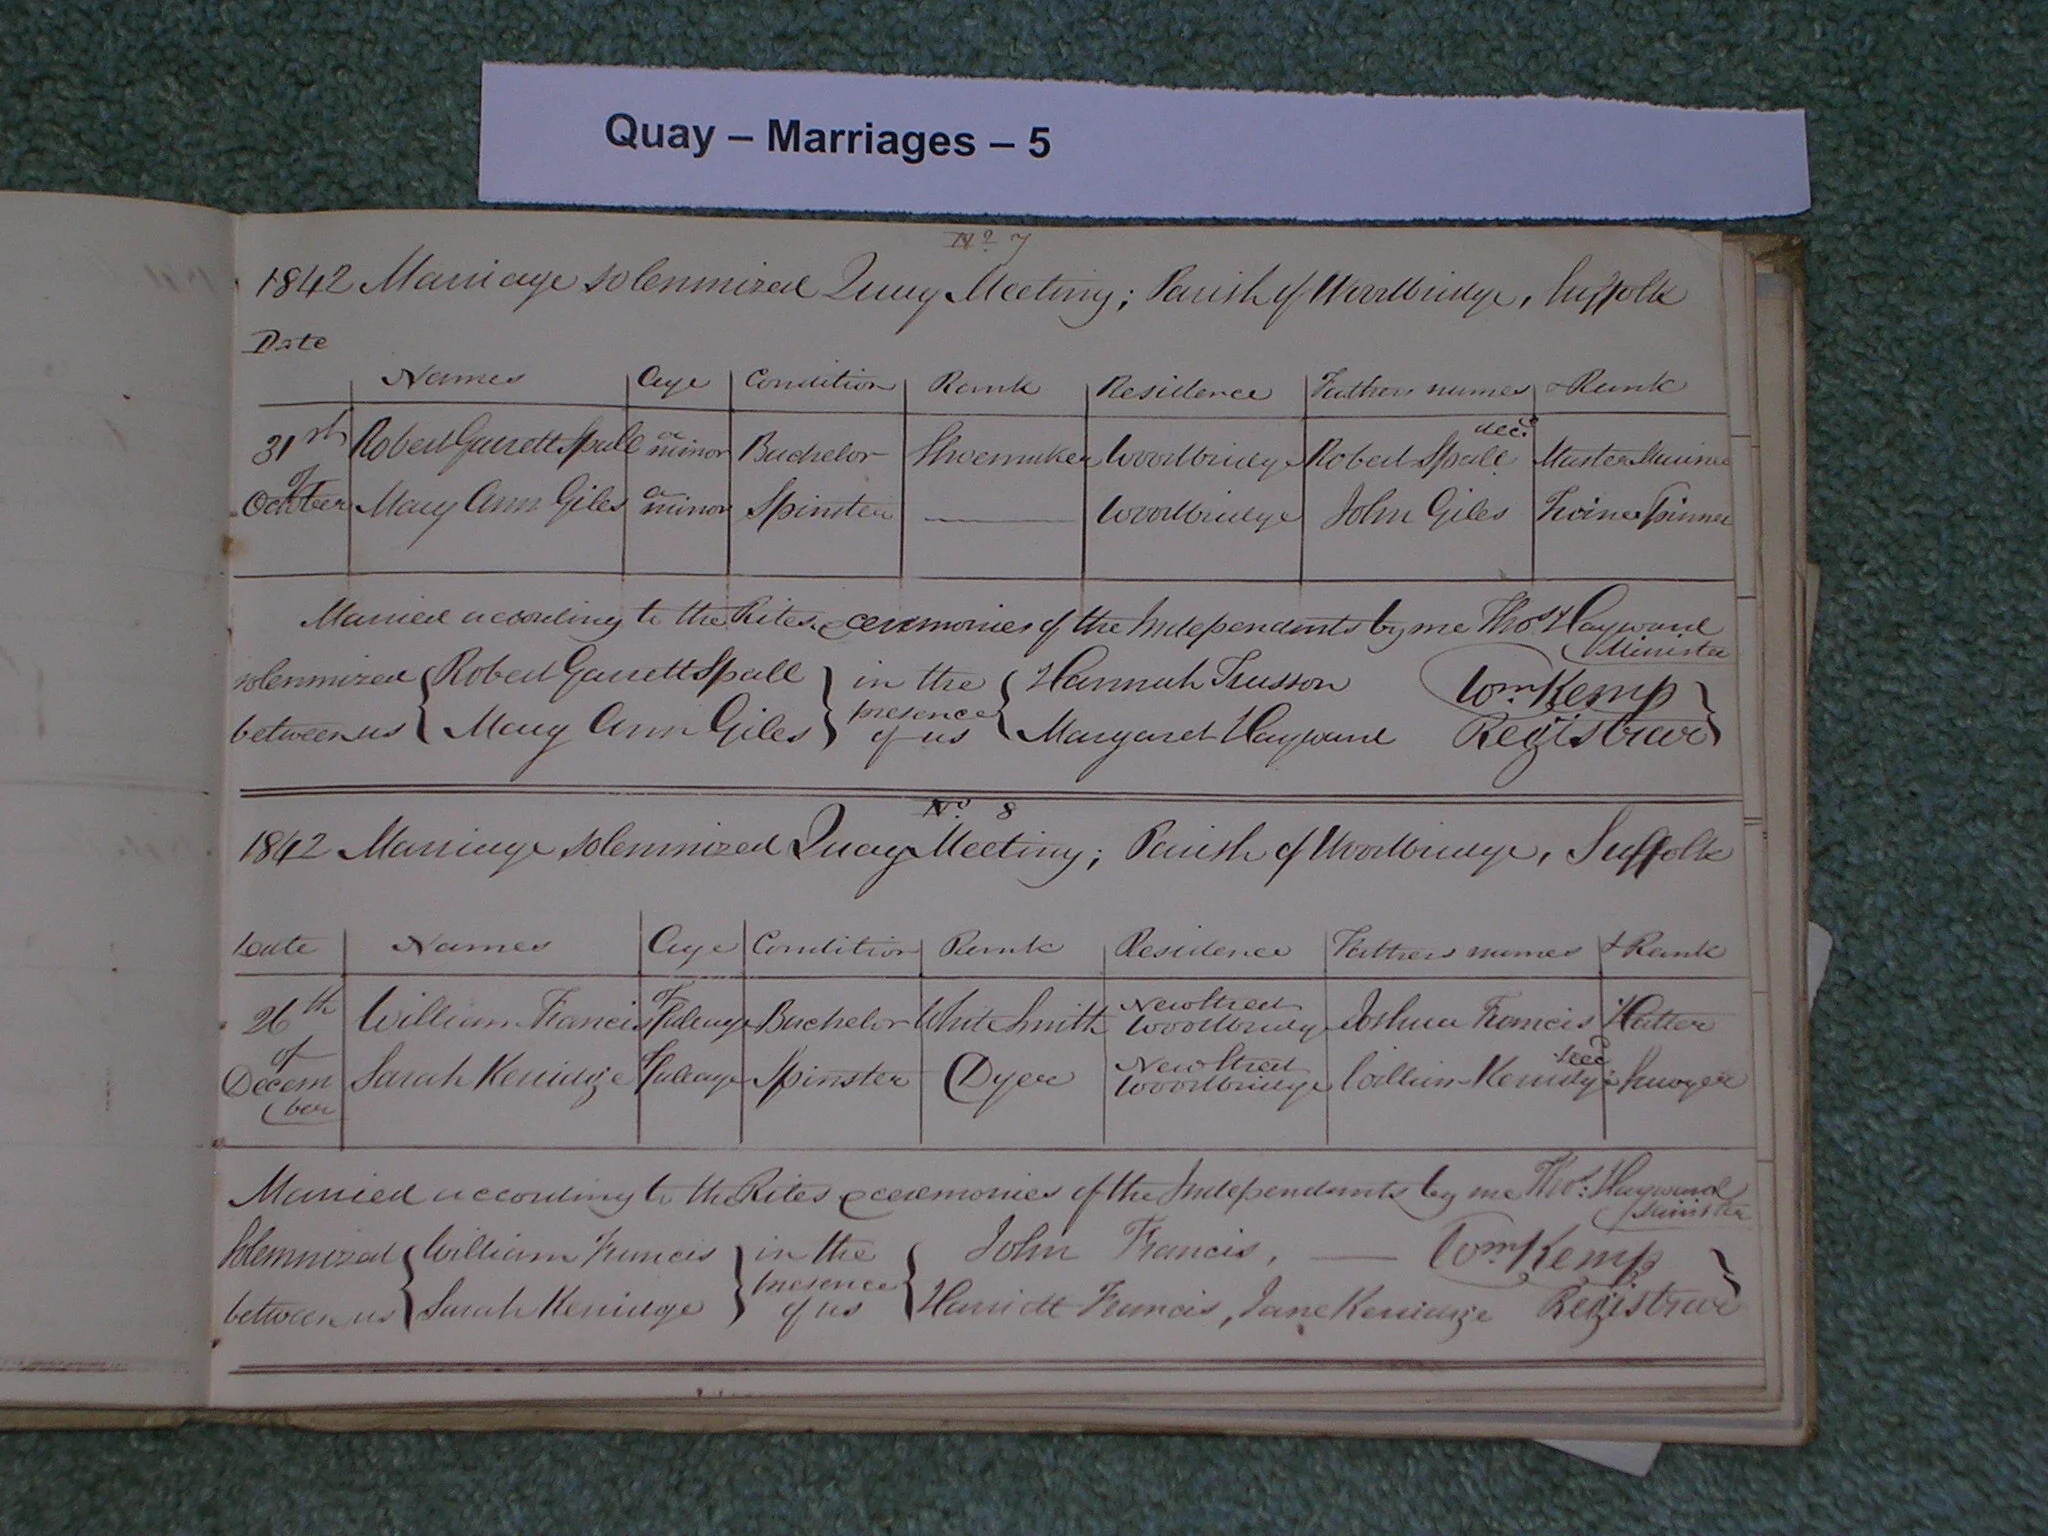 Quay – Marriages – 5
No. 7
1842 Marriage solemnized Quay Meeting; Parish of Woodbridge, Suffolk
Date
Names Age Condition Rank Residence Fathers names & Rank
31st Robert Garrett Spall a minor Bachelor Shoemaker Woodbridge Robert Spall decd. Master Marine
of October Mary Ann Giles a minor Spinster Woodbridge John Giles Twine Spinner
Married according to the Rites & ceremonies of the Independents by me Thos. Hayward
Minister
solemnized { Robert Garrett Spall } in the { Hannah Trusson Wm. Kemp }
between us { Mary Ann Giles } presence of us { Margaret Hayward Registrar }
No. 8
1842 Marriage solemnized Quay Meeting; Parish of Woodbridge, Suffolk
Date Names Age Condition Rank Residence Fathers names & Rank
26th William Francis of full age Bachelor White Smith New Street Woodbridge Joshua Francis Hatter
of Decem ber Sarah Kerridge of full age Spinster Dyer New Street Woodbridge William Kerridge decd. Sawyer
Married according to the Rites & ceremonies of the Independents by me Thos. Hayward
Minister
Solemnized { William Francis } in the { John Francis, — Wm. Kemp }
between us { Sarah Kerridge } presence of us { Harriett Francis, Jane Kerridge Registrar }